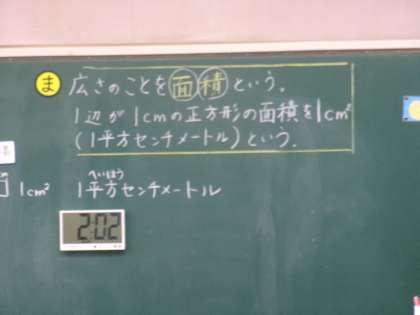 ま 広さのことを面積という。
1辺が1cmの正方形の面積を1cm²
(1平方センチメートル)という.
へいほう
1cm² 1平方センチメートル
2:02